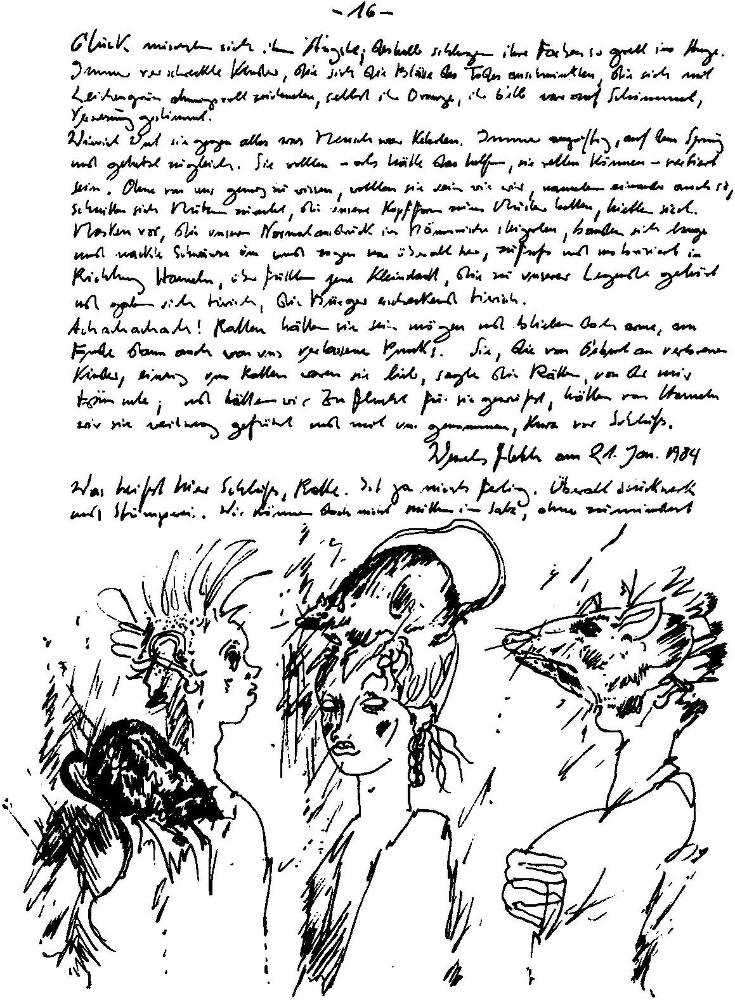 - 16 -
Glück mischten sich ihre Ängste, deshalb schlugen ihre Farben so grell ins Auge.
Immer verschreckte Kinder, die sich die Blässe des Todes anschminkten, die sich mit
Leichengrün ahnungsvoll zeichneten, selbst ihr Orange, ihr Gelb war auf Schimmel,
Verwesung gestimmt.
Wut sie gegen alles was Mensch war Immer auf dem Sprung
und gehetzt zugleich. Sie wollten - als hätte das helfen, sie retten können - vertiert
sein. Ohne von uns genug zu wissen, wollten sie sein wie wir, nannten einander auch so,
schnitten sich Mützen zurecht, die unsere Kopfform zum Muster hatten, hielten sich
Masken vor, die unseren Normalausdruck ins Dämonische steigerten, banden sich lange
und nackte Schwänze um und zogen von überall her, zu Fuß und motorisiert in
Richtung Hameln, überfüllten jene Kleinstadt, die zu unserer Legende gehört
und gaben sich tierisch, die Bürger erschreckend tierisch.
Achachachach! Ratten hätten sie sein mögen und blieben doch arme, am
Ende dann auch von uns verlassene Punks. Sie, die von Geburt an verlorenen
Kinder, einzig uns Ratten waren sie lieb, sagte die Rättin, von der mir
träumte; und hätten wir Zuflucht für sie gewußt, hätten von Hameln
wir sie weitweg geführt und mit uns genommen, kurz vor Schluß.
am 21. Jan. 1984
Was heißt hier Schluß, Ratte. Ist ja nichts fertig. Überall Stückwerk
und Stümperei. Wir können doch nicht mitten im Satz, ohne zumindest